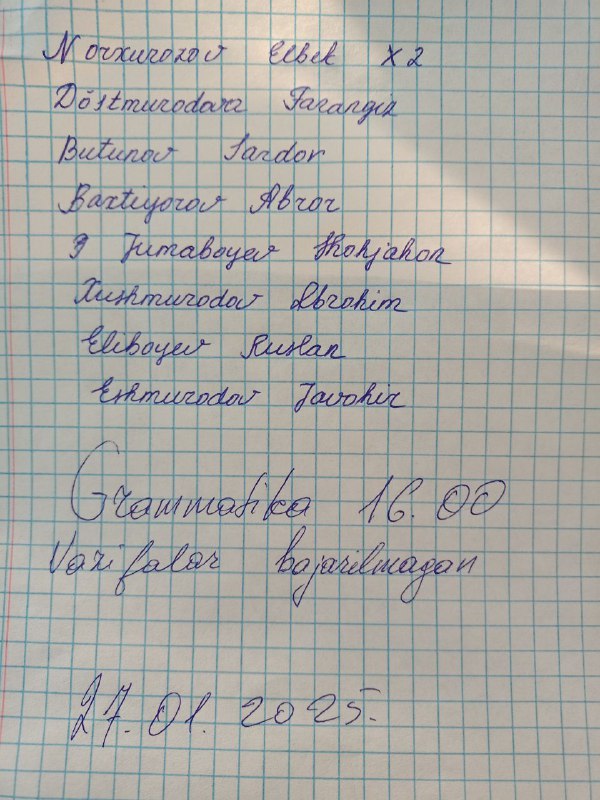 Norxurozov Elbek x2
Dõstmurodova Farangiz
Butunov Sardor
Baxtiyorov Abror
Jumaboyev Shohjahon
Xushmurodov Ibrohim
Eliboyev Ruslan
Eshmurodov Javohir
Grammatika 16.00
Vazifalar bajarilmagan
27.01.2025.